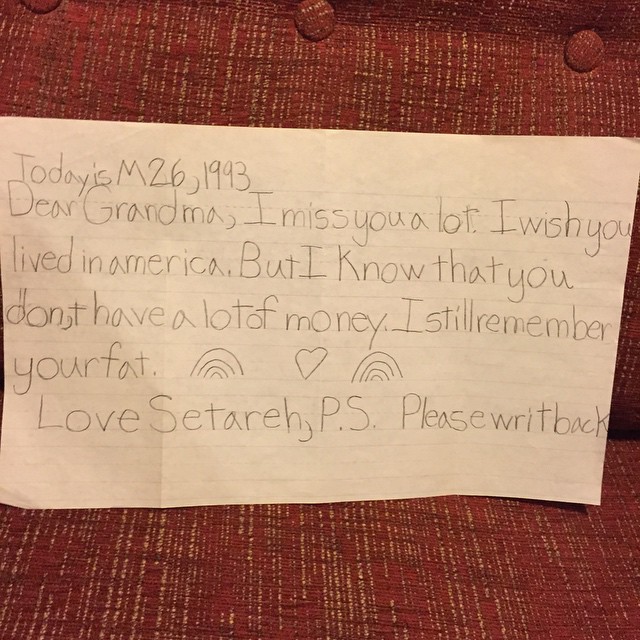 Today is M 26, 1993
Dear Grandma, I miss you a lot. I wish you
lived in america. But I Know that you
don,t have a lot of money. I still remember
your fat.
Love Setareh, P.S. Please writ back